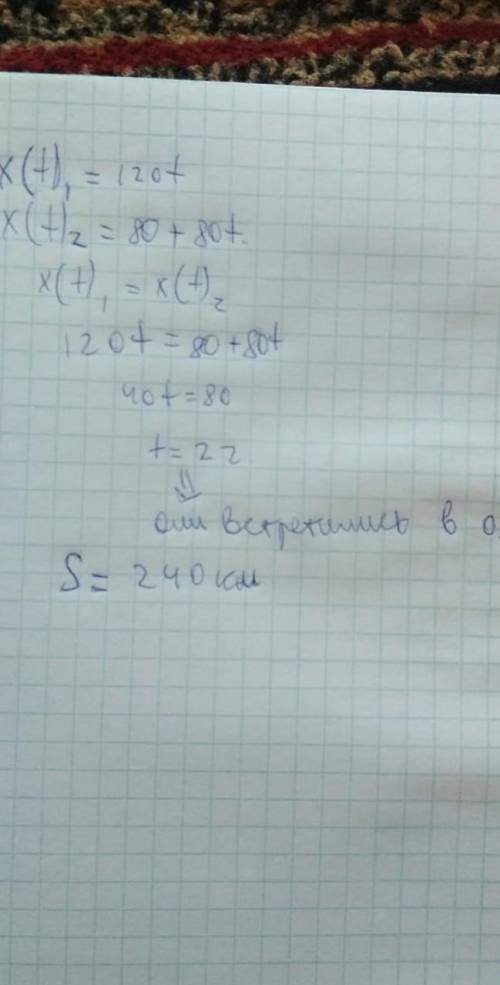 x(t)₁ = 120t
x(t)₂ = 80 + 80t.
x(t)₁ = x(t)₂
120t = 80 + 80t
40t = 80
t = 2 2
⇓
они встретились в
S = 240 км